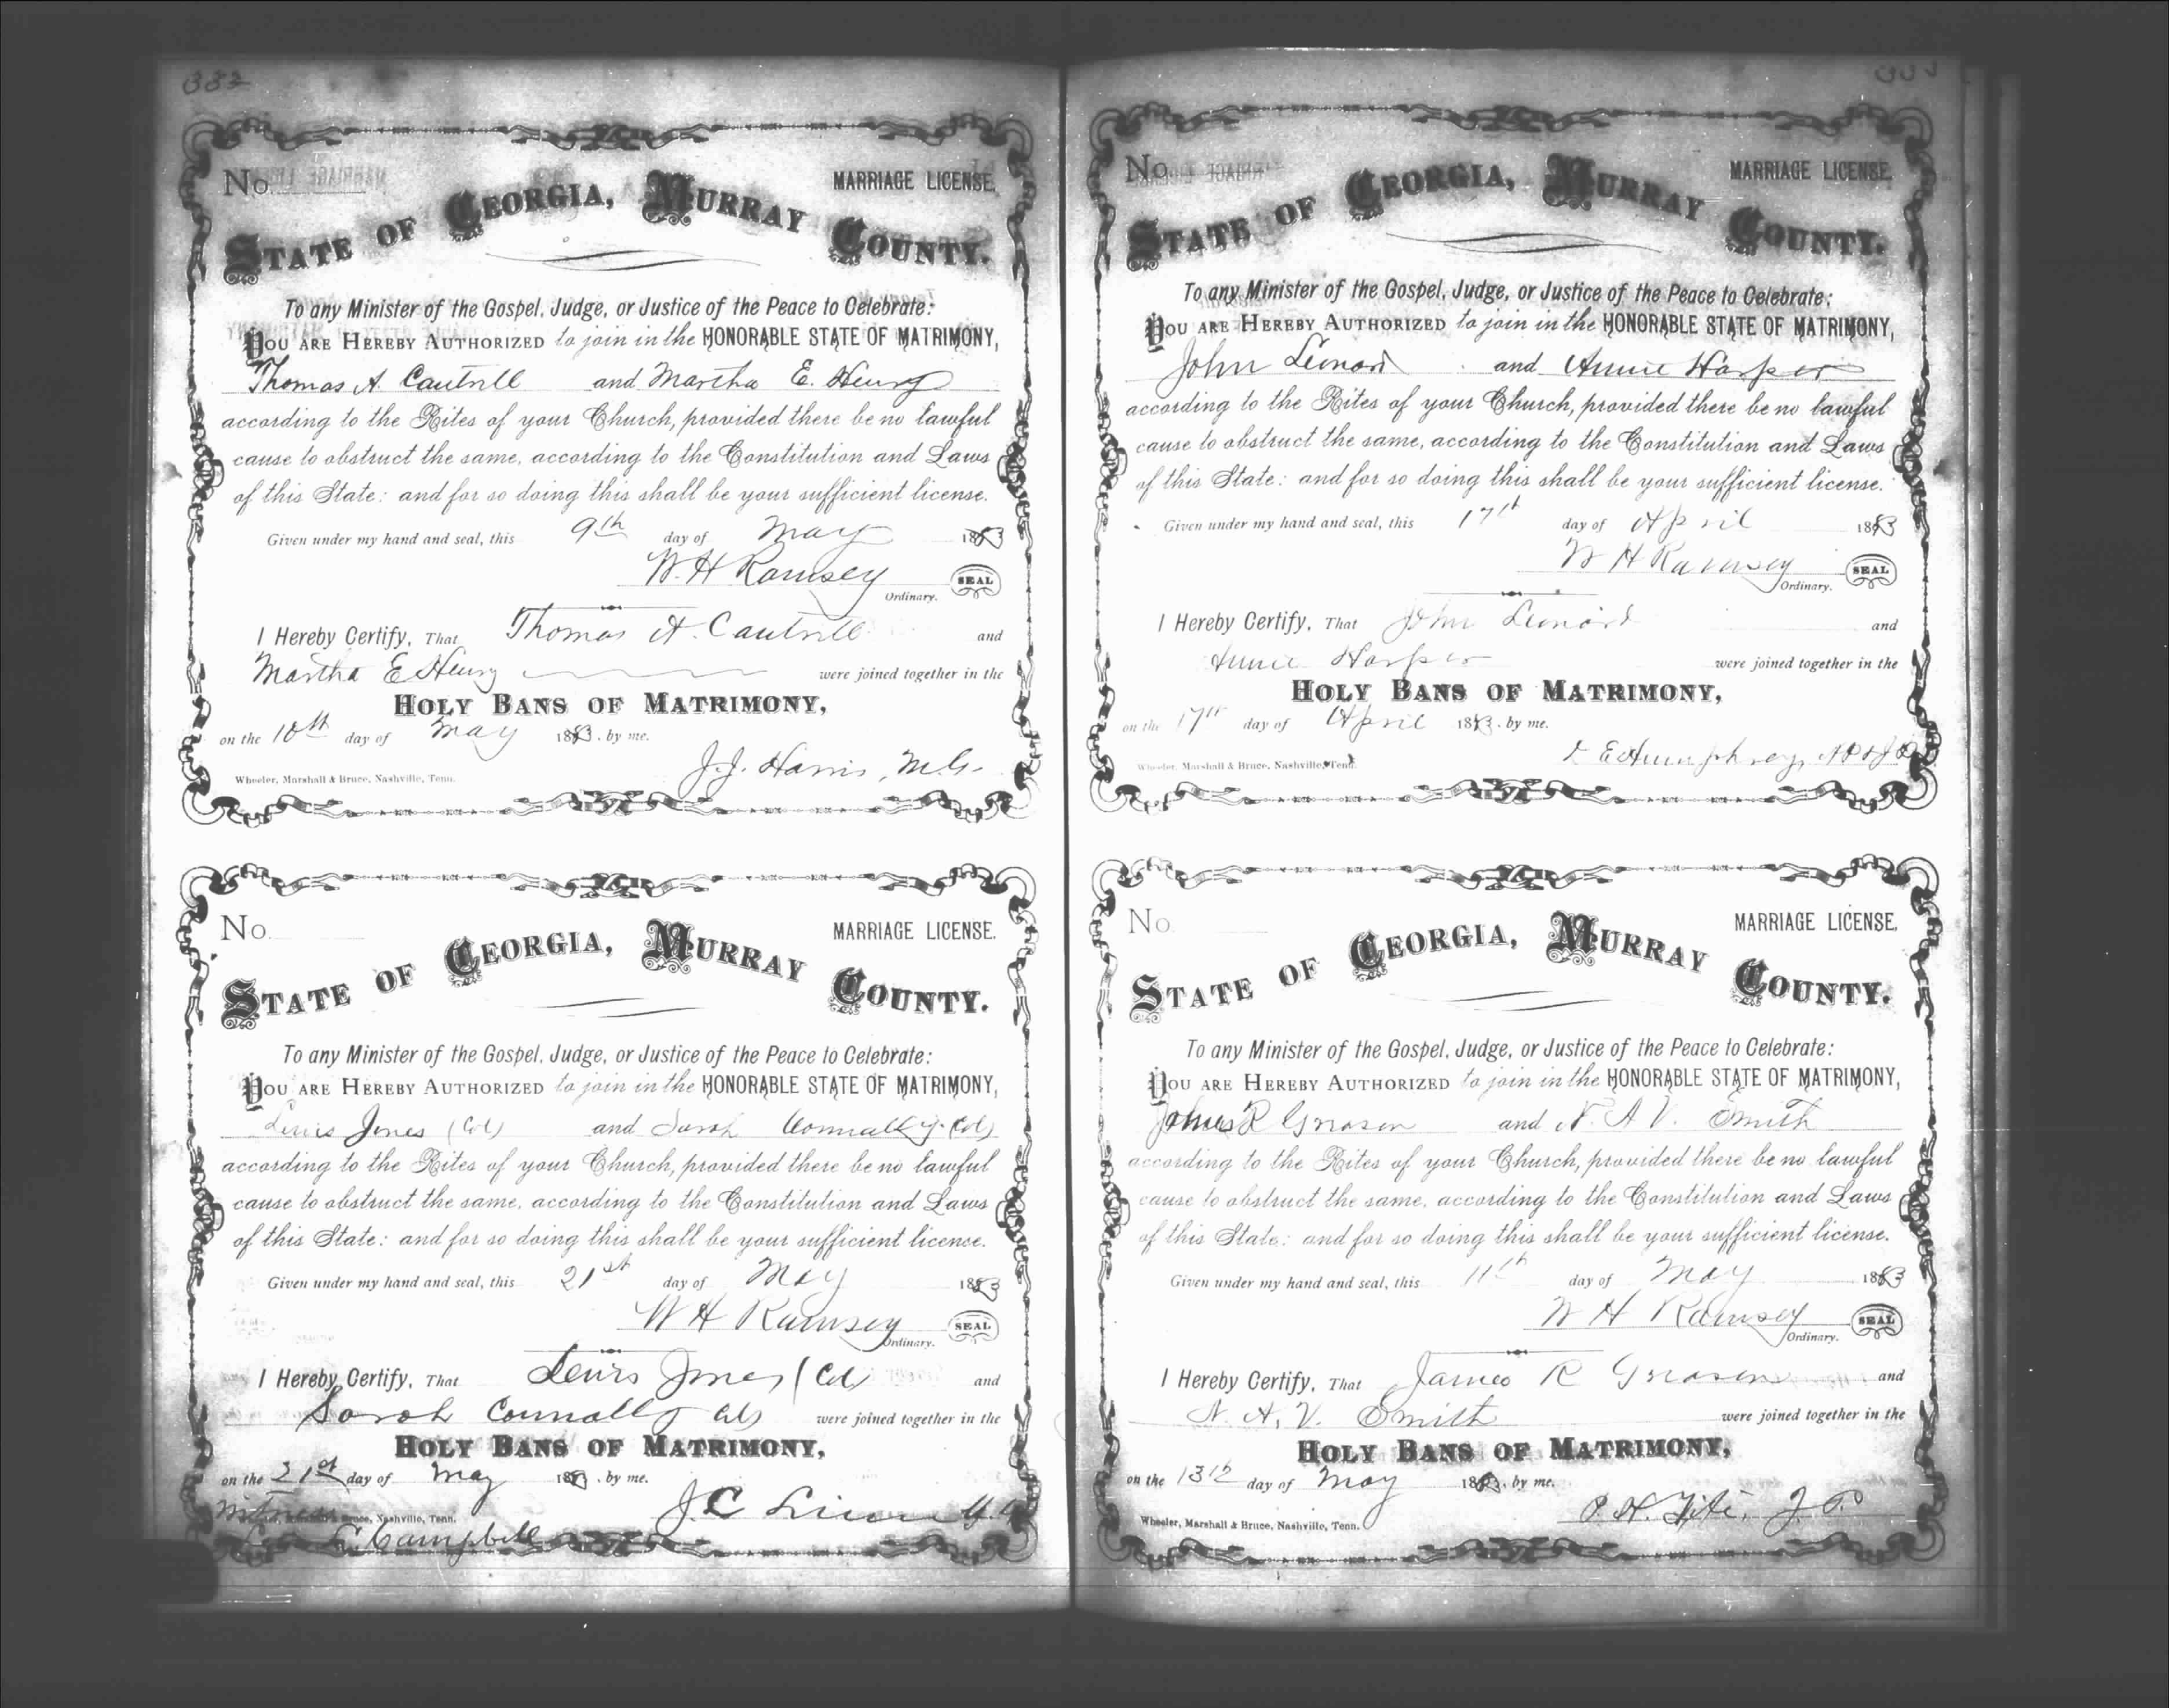 332
No.
MARRIAGE LICENSE.
STATE OF GEORGIA, MURRAY COUNTY.
To any Minister of the Gospel, Judge, or Justice of the Peace to Celebrate:
YOU ARE HEREBY AUTHORIZED to join in the HONORABLE STATE OF MATRIMONY,
Thomas A. Cantrill and Martha E. Henry
according to the Rites of your Church, provided there be no lawful
cause to obstruct the same, according to the Constitution and Laws
of this State: and for so doing this shall be your sufficient license.
Given under my hand and seal, this 9th day of May 1883
W. H Ramsey SEAL
Ordinary.
I Hereby Certify, That Thomas A. Cantrill and
Martha E Henry were joined together in the
HOLY BANS OF MATRIMONY,
on the 10th day of May 1883. by me.
J. J. Harris, M.G.
Wheeler, Marshall & Bruce, Nashville, Tenn.
No.
MARRIAGE LICENSE.
STATE OF GEORGIA, MURRAY COUNTY.
To any Minister of the Gospel, Judge, or Justice of the Peace to Celebrate:
YOU ARE HEREBY AUTHORIZED to join in the HONORABLE STATE OF MATRIMONY,
Lewis Jones (Col) and Sarah Connally (Col)
according to the Rites of your Church, provided there be no lawful
cause to obstruct the same, according to the Constitution and Laws
of this State: and for so doing this shall be your sufficient license.
Given under my hand and seal, this 21st day of May 1883
W H Ramsey SEAL
Ordinary.
I Hereby Certify, That Lewis Jones (Col and
Sarah Connally were joined together in the
HOLY BANS OF MATRIMONY,
on the 21st day of May 1883. by me.
Witness J. C
Bruce, Nashville, Tenn.
Campbell
No.
MARRIAGE LICENSE.
STATE OF GEORGIA, MURRAY COUNTY.
To any Minister of the Gospel, Judge, or Justice of the Peace to Celebrate:
YOU ARE HEREBY AUTHORIZED to join in the HONORABLE STATE OF MATRIMONY,
John Leonard and Annie Harper
according to the Rites of your Church, provided there be no lawful
cause to obstruct the same, according to the Constitution and Laws
of this State: and for so doing this shall be your sufficient license.
Given under my hand and seal, this 17th day of April 1883
W H Ramsey SEAL
Ordinary.
I Hereby Certify, That John Leonard and
Annie Harper were joined together in the
HOLY BANS OF MATRIMONY,
on the 17th day of April 1883. by me.
E Humphrey, NP & JP
Wheeler, Marshall & Bruce, Nashville, Tenn.
No.
MARRIAGE LICENSE.
STATE OF GEORGIA, MURRAY COUNTY.
To any Minister of the Gospel, Judge, or Justice of the Peace to Celebrate:
YOU ARE HEREBY AUTHORIZED to join in the HONORABLE STATE OF MATRIMONY,
James R Greason and N. A V. Smith
according to the Rites of your Church, provided there be no lawful
cause to obstruct the same, according to the Constitution and Laws
of this State: and for so doing this shall be your sufficient license.
Given under my hand and seal, this 11th day of May 1883
W H Ramsey SEAL
Ordinary.
I Hereby Certify, That James R Greason and
N. A. V. Smith were joined together in the
HOLY BANS OF MATRIMONY,
on the 13th day of May 1883. by me.
J. P.
Wheeler, Marshall & Bruce, Nashville, Tenn.